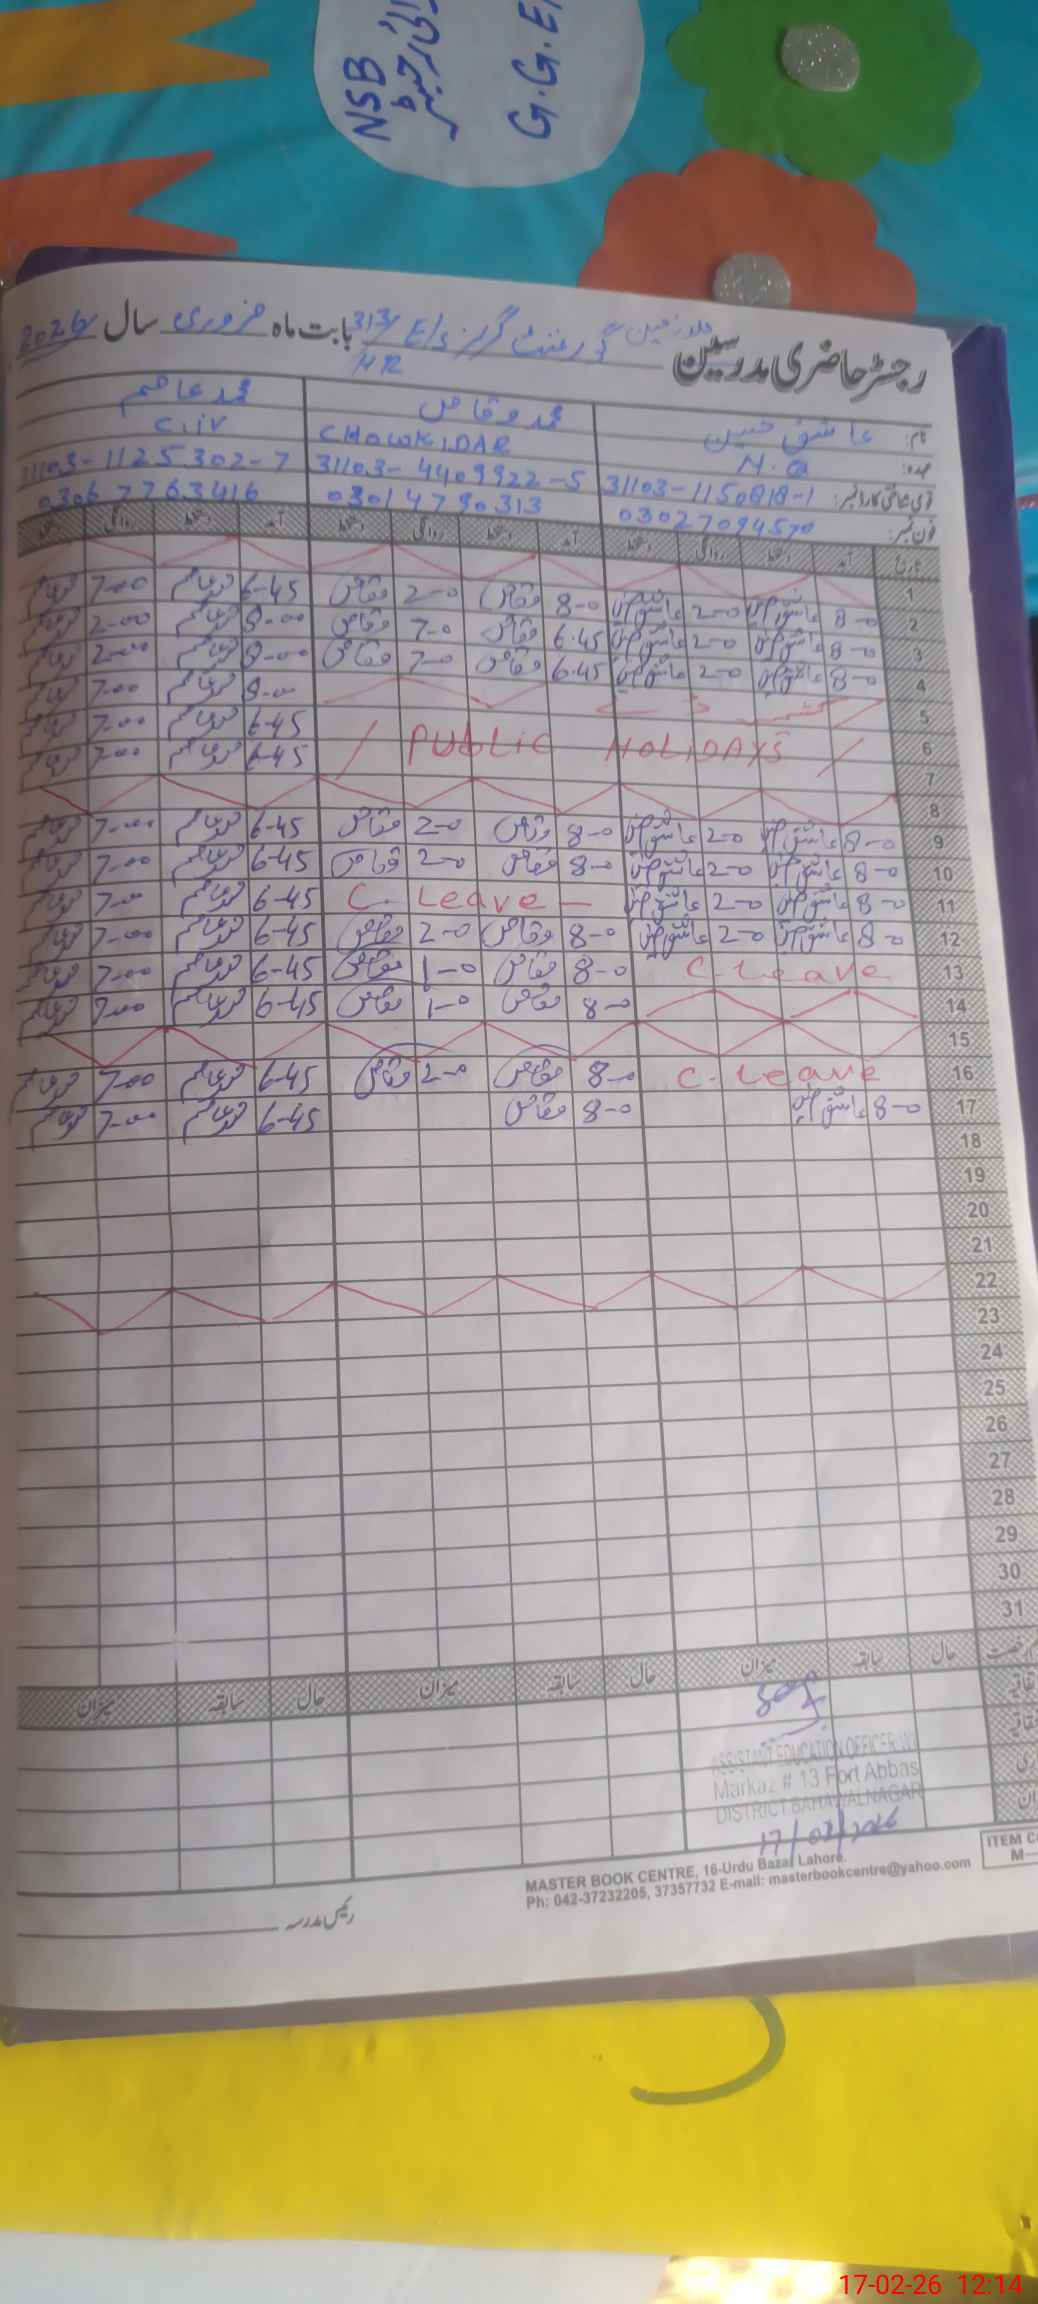 NSB
G.G.E
رجسٹر حاضری مدرسین ملازمین گورنمنٹ گرلز E/s 313/HR بابت ماہ فروری سال 2026
نام: عاشق حسین محمد وقاص محمد عاصم
عہدہ: N.Q CHOWKIDAR C.iv
قومی شناختی کارڈ نمبر: 31103-1150818-1 31103-4409922-5 31103-1125302-7
فون نمبر: 03027094570 03014790313 03067763416
تاریخ آمد دستخط روانگی دستخط آمد دستخط روانگی دستخط آمد دستخط روانگی دستخط
1
2 8-0 عاشق حسین 2-0 عاشق حسین 8-0 وقاص 2-0 وقاص 6-45 محمد عاصم 7-00 محمد عاصم
3 8-0 عاشق حسین 2-0 عاشق حسین 6.45 وقاص 7-0 وقاص 8-00 محمد عاصم 2-00 محمد عاصم
4 8-0 عاشق حسین 2-0 عاشق حسین 6.45 وقاص 7-0 وقاص 8-00 محمد عاصم 2-00 محمد عاصم
5 کشمیر ڈے 8-00 محمد عاصم 7-00 محمد عاصم
6 / PUBLIC HOLIDAYS / 6-45 محمد عاصم 7-00 محمد عاصم
7 6-45 محمد عاصم 7-00 محمد عاصم
8
9 8-0 عاشق حسین 2-0 عاشق حسین 8-0 وقاص 2-0 وقاص 6-45 محمد عاصم 7-00 محمد عاصم
10 8-0 عاشق حسین 2-0 عاشق حسین 8-0 وقاص 2-0 وقاص 6-45 محمد عاصم 7-00 محمد عاصم
11 8-0 عاشق حسین 2-0 عاشق حسین C. Leave - 6-45 محمد عاصم 7-00 محمد عاصم
12 8-0 عاشق حسین 2-0 عاشق حسین 8-0 وقاص 2-0 وقاص 6-45 محمد عاصم 7-00 محمد عاصم
13 C. Leave 8-0 وقاص 1-0 وقاص 6-45 محمد عاصم 7-00 محمد عاصم
14 8-0 وقاص 1-0 وقاص 6-45 محمد عاصم 7-00 محمد عاصم
15
16 C. Leave 8-0 وقاص 2-0 وقاص 6-45 محمد عاصم 7-00 محمد عاصم
17 8-0 عاشق حسین 8-0 وقاص 6-45 محمد عاصم 7-00 محمد عاصم
18
19
20
21
22
23
24
25
26
27
28
29
30
31
حال سابقہ میزان حال سابقہ میزان حال سابقہ میزان
ASSISTANT EDUCATION OFFICER (W)
Markaz # 13 Fort Abbas
DISTRICT BAHAWALNAGAR
17/02/2026
MASTER BOOK CENTRE, 16-Urdu Bazar Lahore.
Ph: 042-37232205, 37357732 E-mail: masterbookcentre@yahoo.com
ITEM C
M-
رئیس مدرسہ
17-02-26 12:14